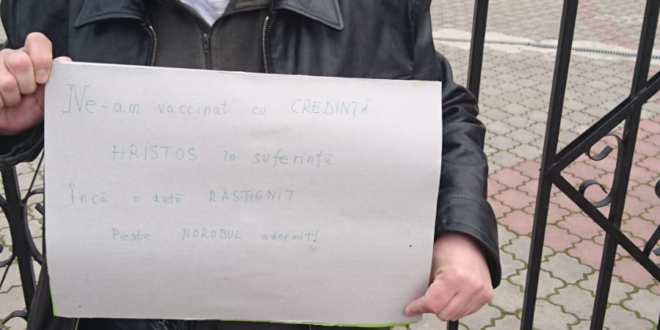 Ne-am vaccinat cu CREDINȚĂ
HRISTOS în suferință
Încă o dată RĂSTIGNIT
Peste NORODUL adormit!